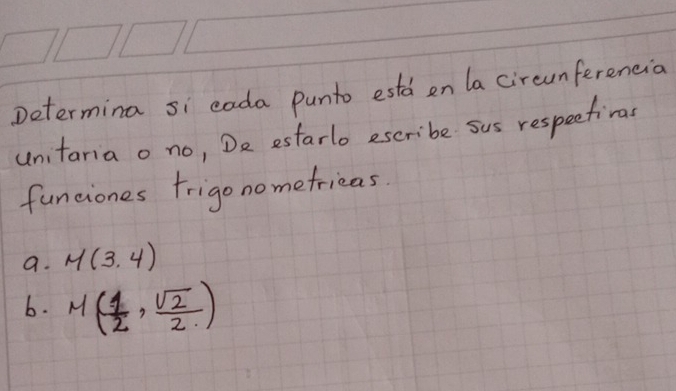 Determina si cada punto está en la circunferencia
unitaria o no, De estarlo escribe sus respectivas
funciones trigonometricas.
a. M(3.4)
b. M(1/2, √2/2.)